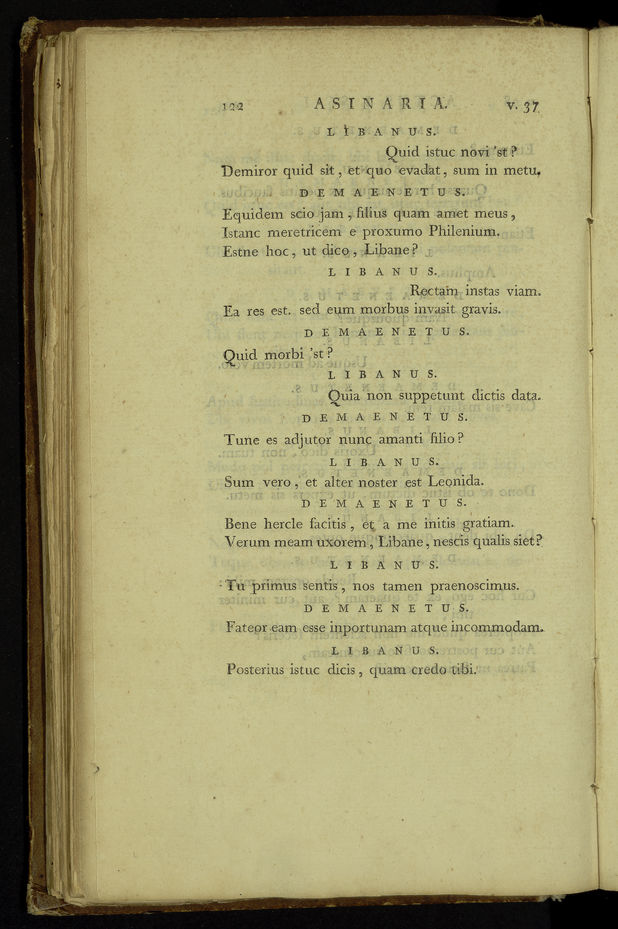 122 ASINARIA. v. 37
LIBANUS.
Quid istuc novi 'st?
Demiror quid sit, et quo evadat, sum in metu.
DEMAENETUS.
Equidem scio jam, filius quam amet meus,
Istanc meretricem e proxumo Philenium.
Estne hoc, ut dico, Libane?
LIBANUS.
Rectam instas viam.
Ea res est. sed eum morbus invasit gravis.
DEMAENETUS.
Quid morbi 'st?
LIBANUS.
Quia non suppetunt dictis data.
DEMAENETUS.
Tune es adjutor nunc amanti filio?
LIBANUS.
Sum vero, et alter noster est Leonida.
DEMAENETUS.
Bene hercle facitis, et a me initis gratiam.
Verum meam uxorem, Libane, nescis qualis siet?
LIBANUS.
Tu primus sentis, nos tamen praenoscimus.
DEMAENETUS.
Fateor eam esse inportunam atque incommodam.
LIBANUS.
Posterius istuc dicis, quam credo tibi.